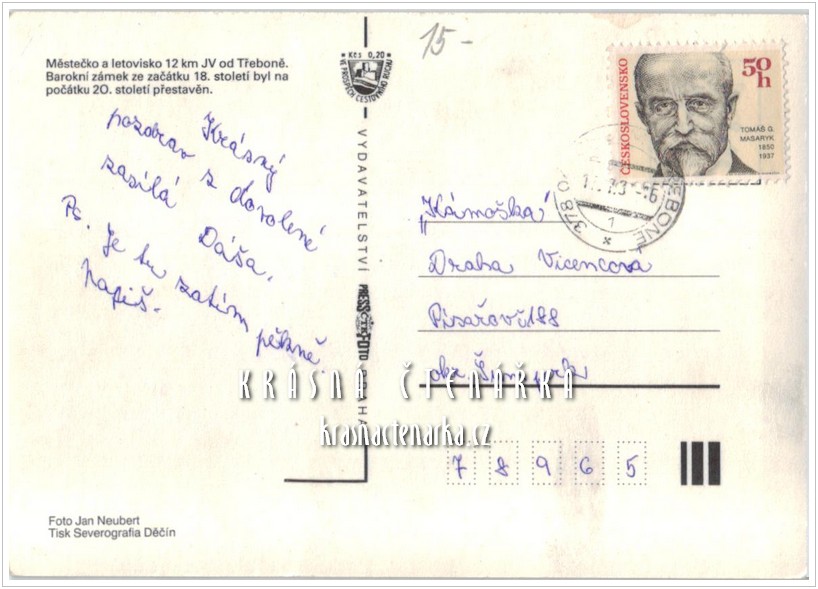 Městečko a letovisko 12 km JV od Třeboně.
Barokní zámek ze začátku 18. století byl na
počátku 20. století přestavěn.
Krásný
pozdrav z dovolené
zasílá Dáša.
Ps. Je tu zatím pěkně.
Napiš.
Foto Jan Neubert
Tisk Severografia Děčín
Kčs 0,20
VE PROSPĚCH CESTOVNÍHO RUCHU
VYDAVATELSTVÍ PRESSFOTO PRAHA
15-
ČESKOSLOVENSKO
50 h
TOMÁŠ G.
MASARYK
1850
1937
378
1
"Kámoška"
Draha Vicencova
Písařov č. 188
okr. Šumperk
78965
KRÁSNÁ ČTENÁŘKA
krasnactenarka.cz